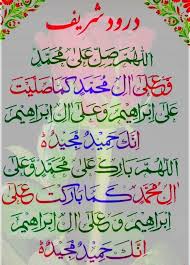 درود شریف
اللهم صل علی محمد
وعلی ال محمد كما صلیت
علی ابراهیم وعلی ال ابراهیم
انك حمید مجیده
اللهم بارك علی محمد وعلی
ال محمد كما باركت علی
ابراهیم وعلی ال ابراهیم
انك حمید مجیده